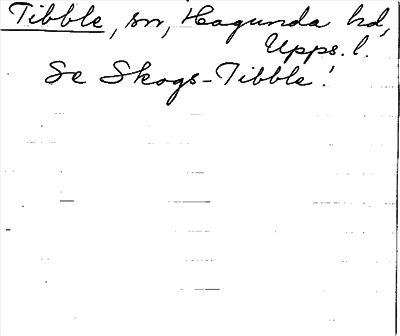 Tibble, sn, Hagunda hd,
Upps. l.
Se Skogs-Tibble!